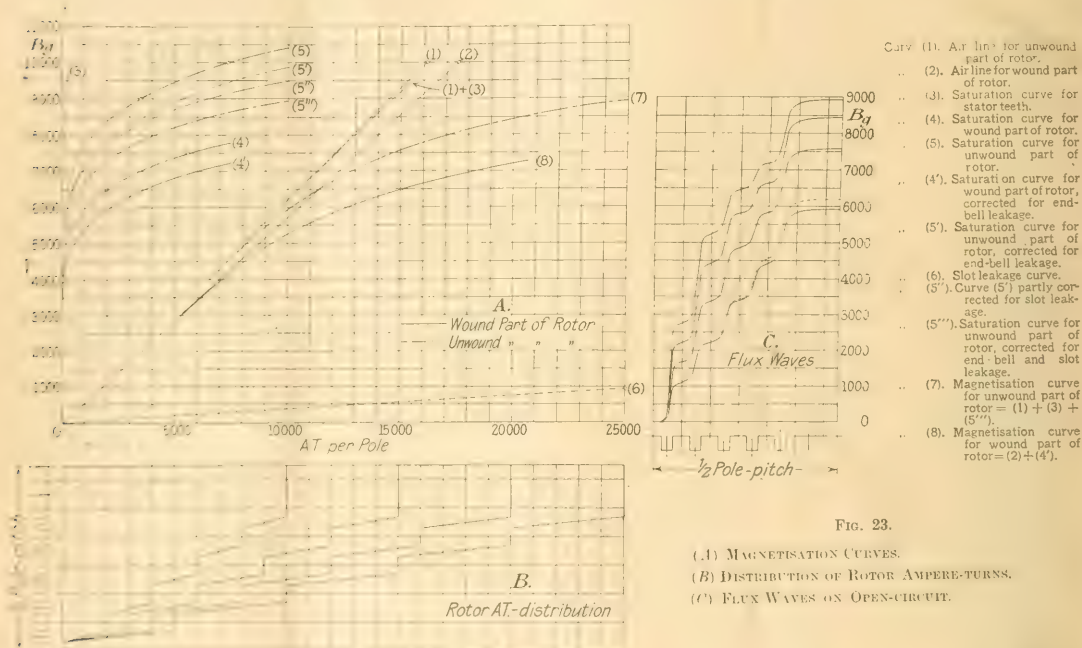 Bg
10000
9000
8000
7000
6000
5000
4000
3000
2000
1000
0
5000
10000
15000
20000
25000
AT per Pole
(3)
(5)
(5')
(5'')
(5''')
(4)
(4')
(1)
(2)
(1)+(3)
(7)
(8)
(6)
A.
Wound Part of Rotor
Unwound " " "
9000
Bg
8000
7000
6000
5000
4000
3000
2000
1000
0
C.
Flux Waves
½ Pole-pitch
B.
Rotor AT.-distribution
Curve (1). Air line for unwound
part of rotor.
.. (2). Air line for wound part
of rotor.
.. (3). Saturation curve for
stator teeth.
.. (4). Saturation curve for
wound part of rotor.
.. (5). Saturation curve for
unwound part of
rotor.
.. (4'). Saturation curve for
wound part of rotor,
corrected for end-
bell leakage.
.. (5'). Saturation curve for
unwound part of
rotor, corrected for
end-bell leakage.
.. (6). Slot leakage curve.
.. (5''). Curve (5') partly cor-
rected for slot leak-
age.
.. (5'''). Saturation curve for
unwound part of
rotor, corrected for
end-bell and slot
leakage.
.. (7). Magnetisation curve
for unwound part of
rotor = (1) + (3) +
(5''').
.. (8). Magnetisation curve
for wound part of
rotor = (2) + (4').
FIG. 23.
(A) MAGNETISATION CURVES.
(B) DISTRIBUTION OF ROTOR AMPERE-TURNS.
(C) FLUX WAVES ON OPEN-CIRCUIT.